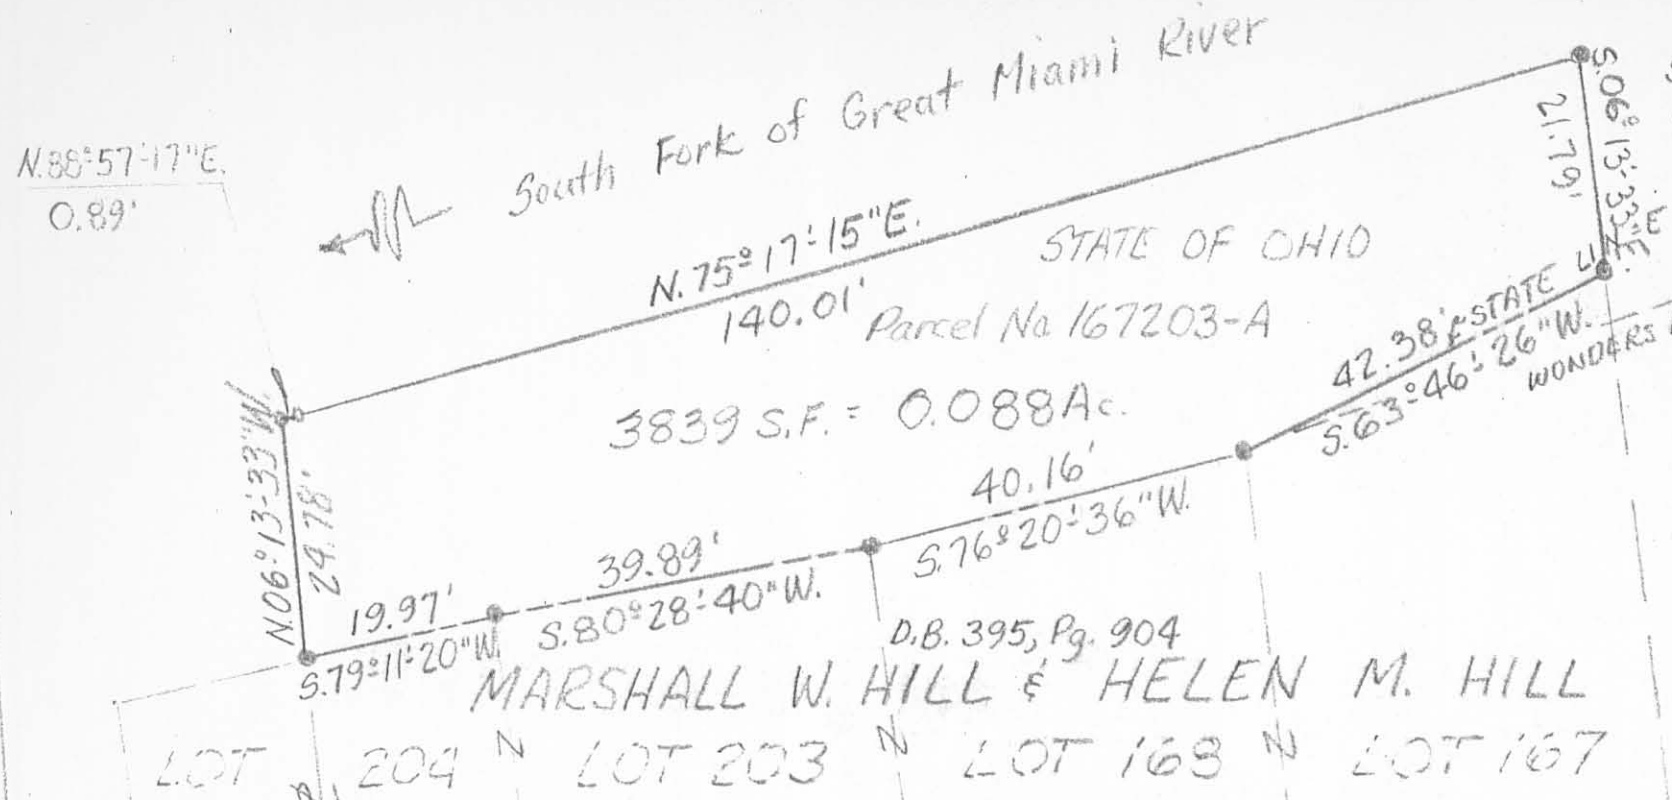 South Fork of Great Miami River
N.88°57'-17"E.
0.89'
S.06°13'-33"E.
21.79'
N.75°17'-15"E.
140.01'
STATE OF OHIO
Parcel No 167203-A
3839 S.F. = 0.088Ac.
42.38'
STATE
S.63°46'-26"W.
WONDERS
N.06°13'-33"W.
24.78'
40.16'
S.76°20'-36"W.
39.89'
S.80°28'-40"W.
19.97'
S.79°11'-20"W.
D.B. 395, Pg. 904
MARSHALL W. HILL & HELEN M. HILL
LOT 204 N LOT 203 N LOT 168 N LOT 167